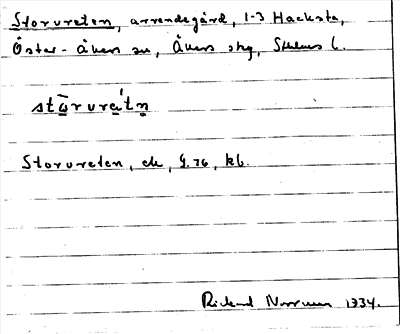 Storvreten, arrendegård, 1-3 Hacksta,
Öster-Åkers sn, Åkers shg, Sthlms l.
stōrvrètn
Storvreten, ek, G.76, kb.
Rickard Norrman 1934.